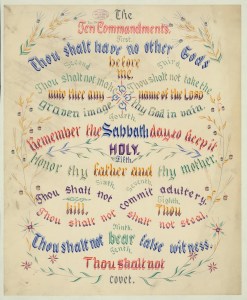 The
Ten Commandments.
First
Thou shalt have no other Gods
before
me.
Second
Thou shalt not make
unto thee any
graven image
Third
Thou shalt not take the
name of the Lord
thy God in vain.
Fourth
Remember the Sabbath day to keep it
HOLY.
Fifth
Honor thy father and thy mother.
Sixth
Thou shalt not
kill.
Seventh
Thou shalt not commit adultery.
Eighth
Thou shalt not steal.
Ninth
Thou shalt not bear false witness.
Tenth
Thou shalt not
covet.